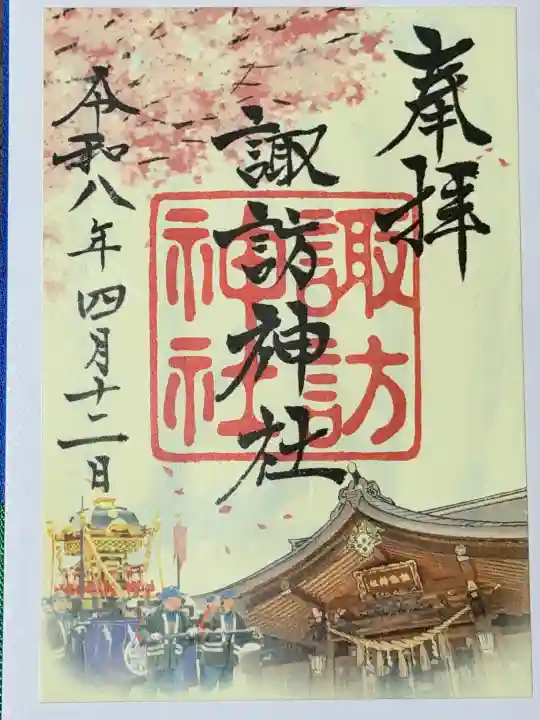 奉拝
諏訪神社
諏訪
神社
令和八年四月十二日